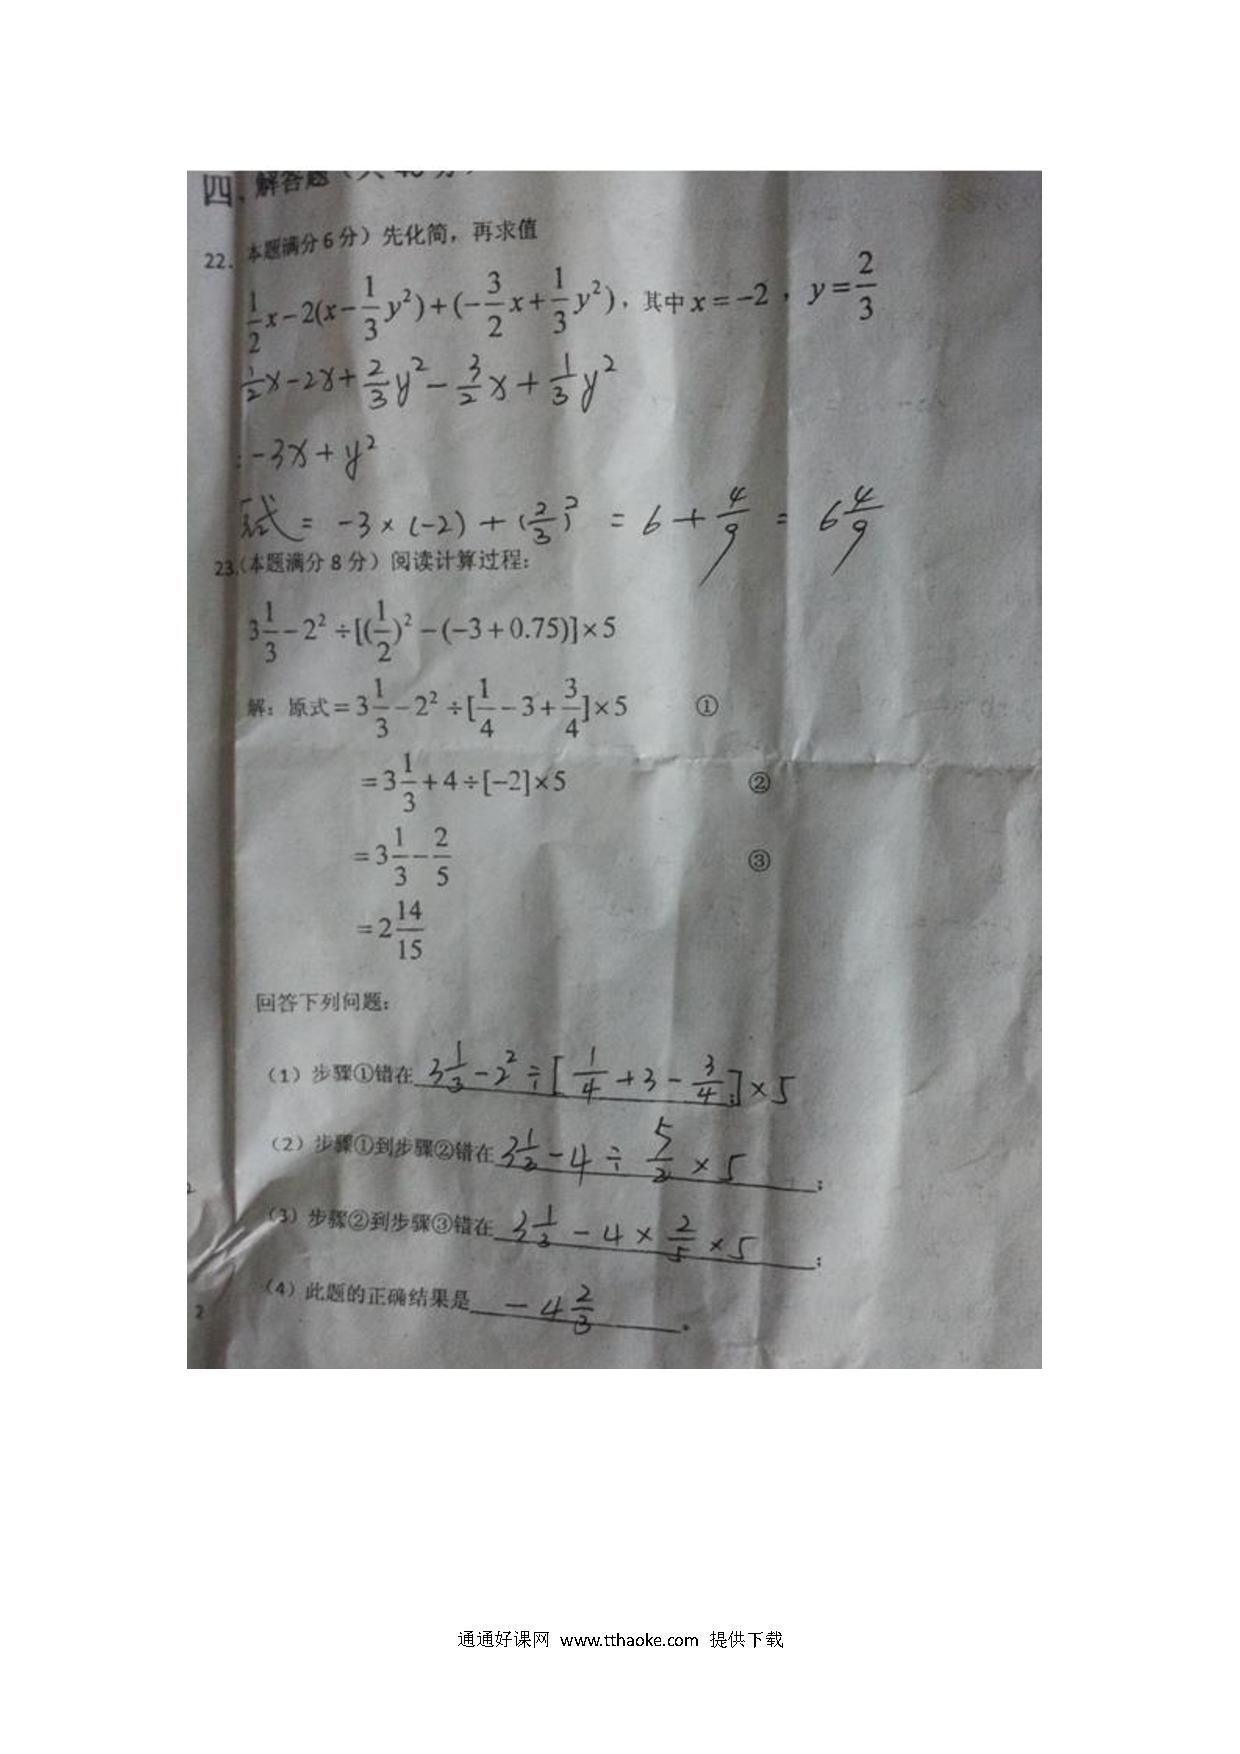 四、解答题（共 40 分）
22. 本题满分6分）先化简，再求值
1/2x-2(x-1/3y²)+(-3/2x+1/3y²)，其中x=-2，y=2/3
1/2x-2x+2/3y²-3/2x+1/3y²
=-3x+y²
原式=-3×(-2)+(2/3)²=6+4/9=6 4/9
23.(本题满分8分）阅读计算过程：
3 1/3-2²÷[(1/2)²-(-3+0.75)]×5
解：原式=3 1/3-2²÷[1/4-3+3/4]×5 ①
=3 1/3+4÷[-2]×5 ②
=3 1/3-2/5 ③
=2 14/15
回答下列问题：
（1）步骤①错在3 1/3-2²÷[1/4+3-3/4]×5；
（2）步骤①到步骤②错在3 1/3-4÷5/2×5；
（3）步骤②到步骤③错在3 1/3-4×2/5×5；
（4）此题的正确结果是-4 2/3。
2
2
通通好课网 www.tthaoke.com 提供下载